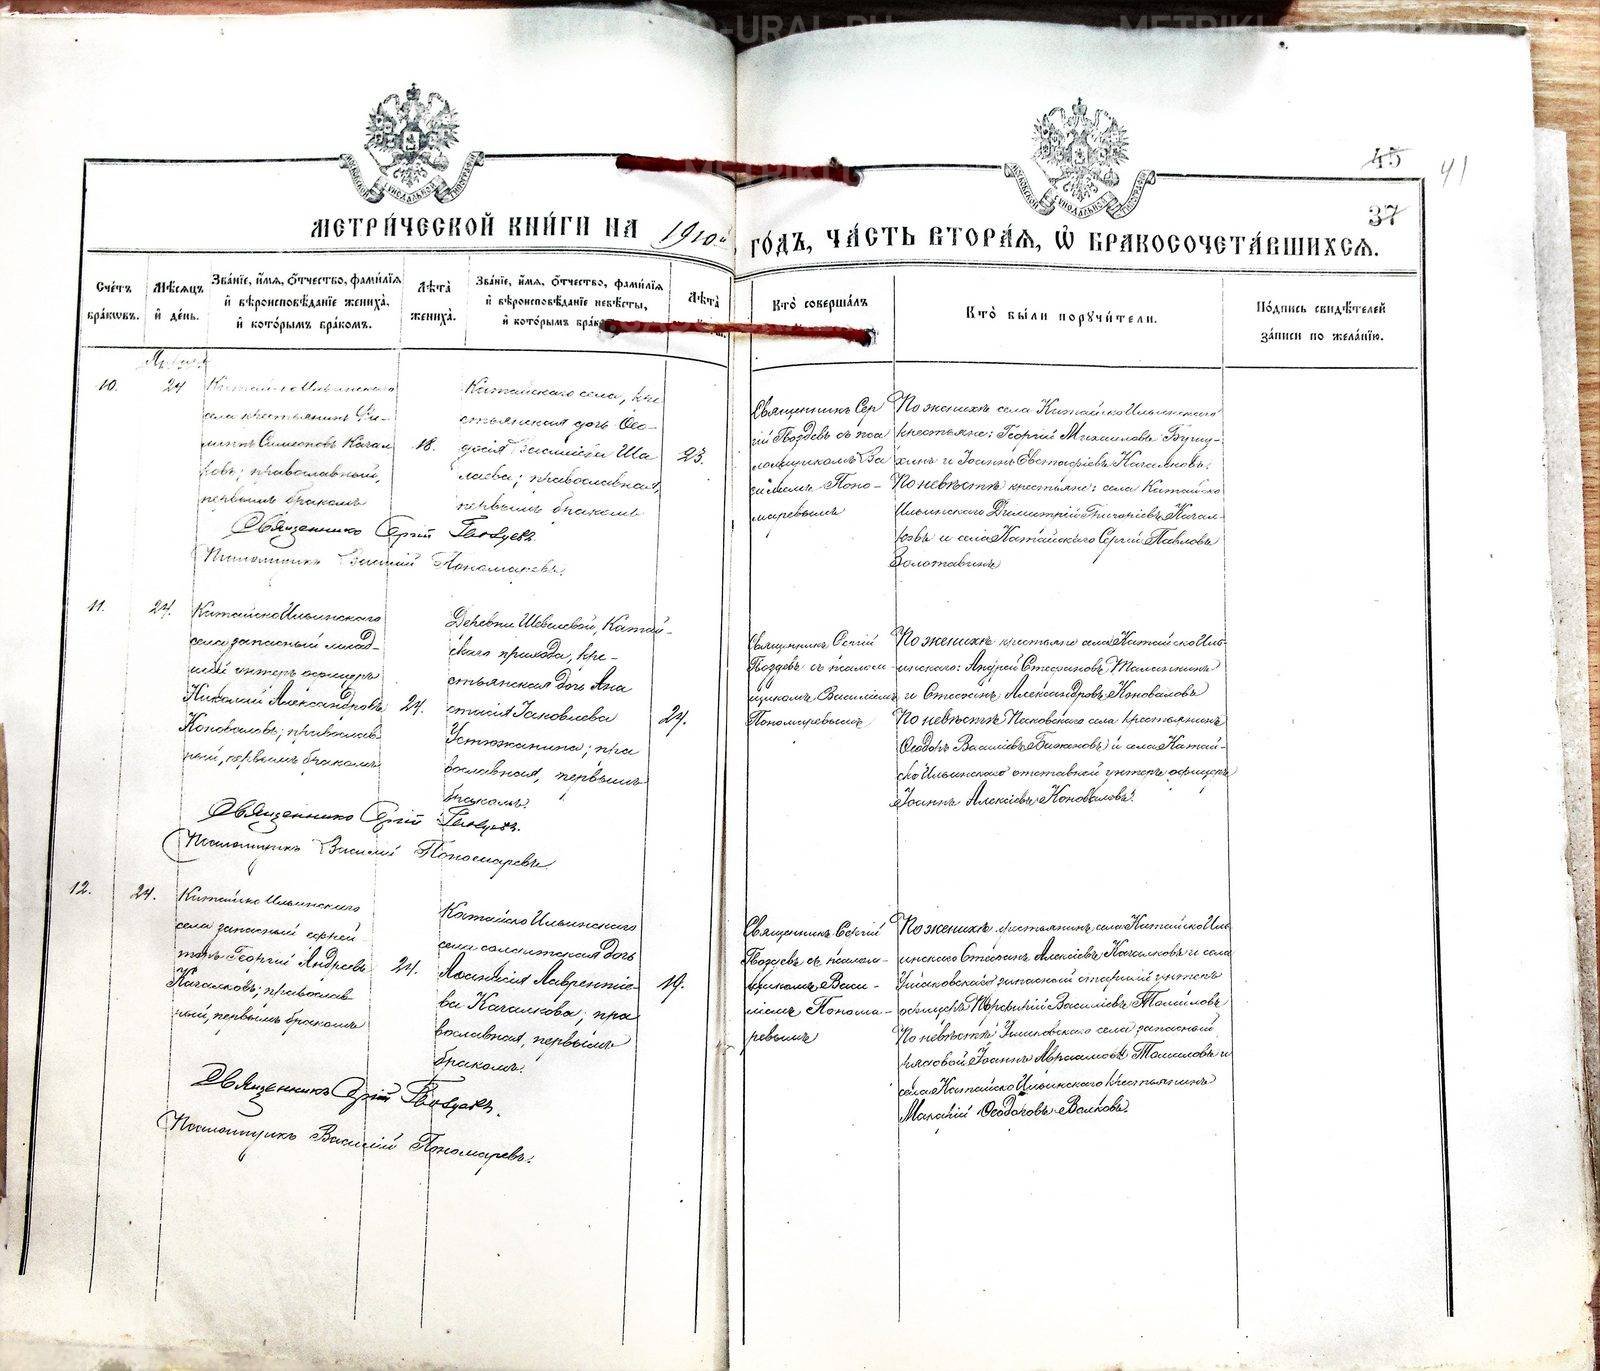 45
41
37
МЕТРИ́ЧЕСКОЙ КНИ́ГИ НА 1910й ГО́ДЪ, ЧА́СТЬ ВТОРА́Я, Ѡ БРАКОСОЧЕТА́ВШИХСЯ.
Сче́тъ бра́ковъ.
Мѣ́сяцъ и де́нь.
Зва́нїе, и́мя, ѻ́тчество, фами́лїя и вѣроисповѣ́данїе жениха́, и кото́рымъ бра́комъ.
Лѣ́та жениха́.
Зва́нїе, и́мя, ѻ́тчество, фами́лїя и вѣроисповѣ́данїе невѣ́сты, и кото́рымъ бра́
Лѣ́та
Кто̀ соверша́лъ
Кто̀ бы́ли поручи́тели.
По́дпись свидѣ́телей за́писи по жела́нїю.
10.
24
Катайско Ильинскаго
села крестьянинъ Фи-
липпъ Симеоновъ Качал
ковъ; православный,
первымъ бракомъ
18.
Катайскаго села, кре
стьянская дочь Ѳео-
досія Василіева Ша
лаева; православная,
первымъ бракомъ
23.
Священникъ Сер
гій Гвоздевъ съ пса
ломщикомъ Ва
силіемъ Поно-
маревымъ
По женихѣ села Катайско Ильинскаго
крестьяне: Георгій Михаиловъ
и Іоаннъ Евстафіевъ Качалковъ.
По невѣстѣ крестьяне: села Катайско
Ильинскаго Димитрій Григоріевъ Качал-
ковъ и села Катайскаго Сергій Павловъ
Золотавинъ
Священникъ Сергій Гвоздевъ.
Псаломщикъ Василій Пономаревъ.
11.
24.
Катайско Ильинскаго
села запасный млад-
шій унтеръ офицеръ
Николай Александровъ
Коноваловъ; православ
ный, первымъ бракомъ
24.
Деревни Шевелевой, Катай-
скаго прихода, кре-
стьянская дочь Ана
стасія Іаковлева
Устюжанина; пра
вославная, первымъ
бракомъ.
24.
Священникъ Сергій
Гвоздевъ съ псалом-
щикомъ Василіемъ
Пономаревымъ
По женихѣ крестьяне села Катайско Иль-
инскаго: Андрей Стефановъ
и Стефанъ Александровъ Коноваловъ
По невѣстѣ села крестьянинъ
Ѳеодоръ Василіевъ и села Катай-
ско Ильинскаго отставной унтеръ офицеръ
Іоаннъ Алексіевъ Коноваловъ.
Священникъ Сергій Гвоздевъ.
Псаломщикъ Василій Пономаревъ
12.
24.
Катайско Ильинскаго
села запасный ефрей
торъ Георгій Андреевъ
Качалковъ; православ
ный, первымъ бракомъ
24.
Катайско Ильинскаго
села солдатская дочь
Аѳанасія Лаврентіе-
ва Качалкова; пра
вославная, первымъ
бракомъ.
19.
Священникъ Сергій
Гвоздевъ съ псалом-
щикомъ Васи-
ліемъ Понома-
ревымъ
По женихѣ крестьянинъ села Катайско Иль
инскаго Стефанъ Алексіевъ Качалковъ и села
запасный старшій унтеръ
офицеръ Василіевъ Томиловъ
По невѣстѣ села запасный
рядовой Іоаннъ Авраамовъ Томиловъ и
села Катайско Ильинскаго крестьянинъ
Ѳеодоровъ Волковъ.
Священникъ Сергій Гвоздевъ.
Псаломщикъ Василій Пономаревъ.